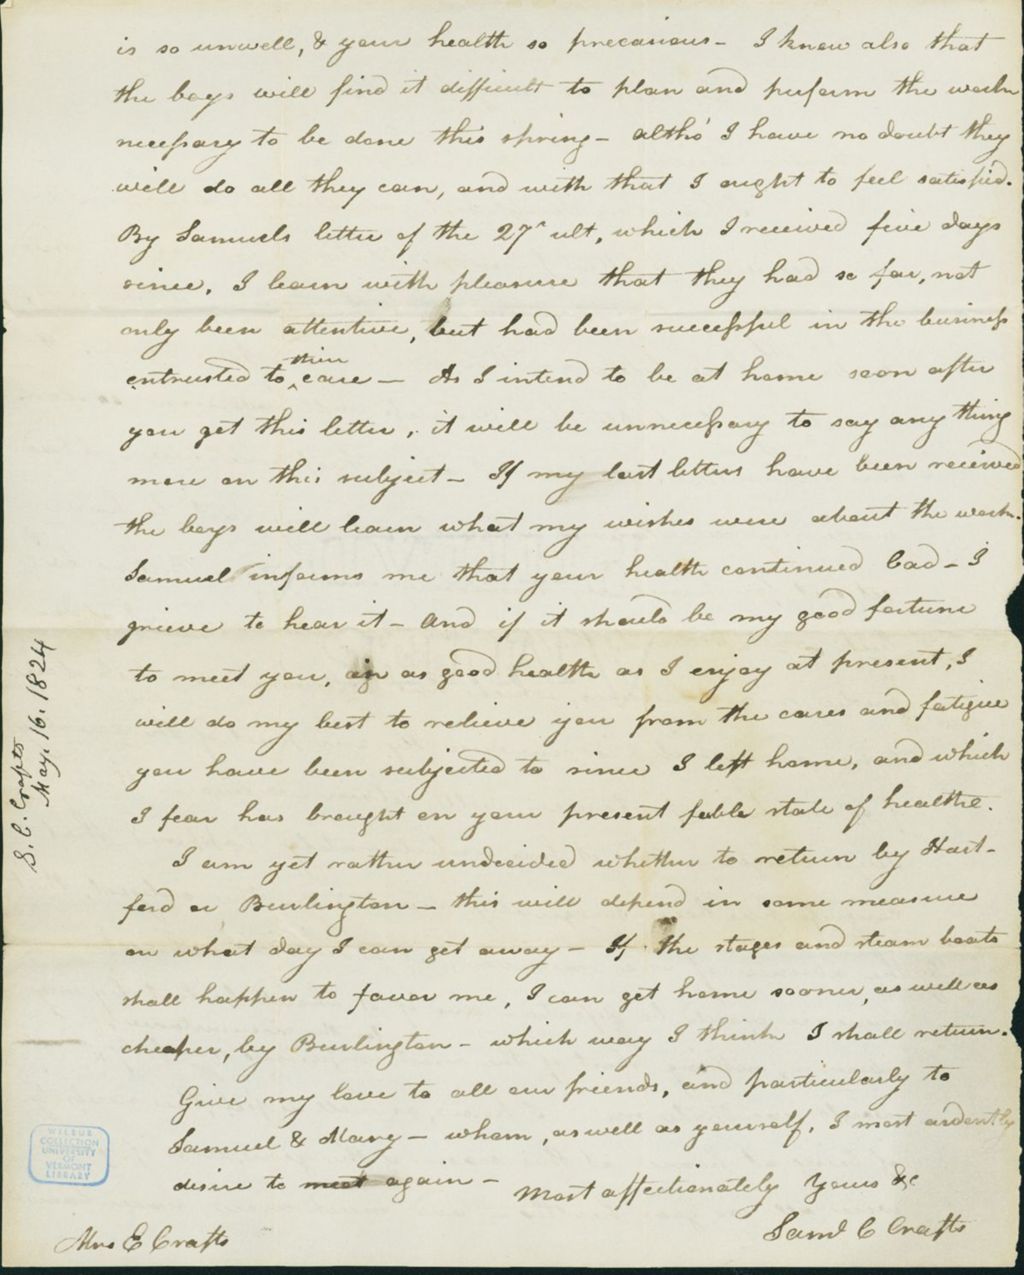 is so unwell, & your health so precarious - I know also that
the boys will find it difficult to plan and perform the work
necessary to be done this spring - altho' I have no doubt they
will do all they can, and with that I ought to feel satisfied.
By Samuels letter of the 27th ult, which I received five days
since, I learn with pleasure that they had so far, not
only been attentive, but had been successful in the business
entrusted to ^their care — As I intend to be at home soon after
you get this letter, it will be unnecessary to say any thing
more on this subject - If my last letters have been received
the boys will learn what my wishes were about the work.
Samuel informs me that your health continued bad - I
grieve to hear it - And if it should be my good fortune
to meet you, in as good health as I enjoy at present, I
will do my best to relieve you from the cares and fatigue
you have been subjected to since I left home, and which
I fear has brought on your present feble state of health.
I am yet rather undecided whether to return by Hart-
ford or Burlington - this will depend in some measure
on what day I can get away - If the stages and steam boats
shall happen to favor me, I can get home sooner, as well as
cheaper, by Burlington - which way I think I shall return.
Give my love to all our friends, and particularly to
Samuel & Mary - whom, as well as yourself, I most ardently
desire to meet again -
Most affectionately Yours &c
Saml C Crafts
Mrs E Crafts
S. C. Crafts
May. 16. 1824
WILBUR
COLLECTION
UNIVERSITY
OF
VERMONT
LIBRARY